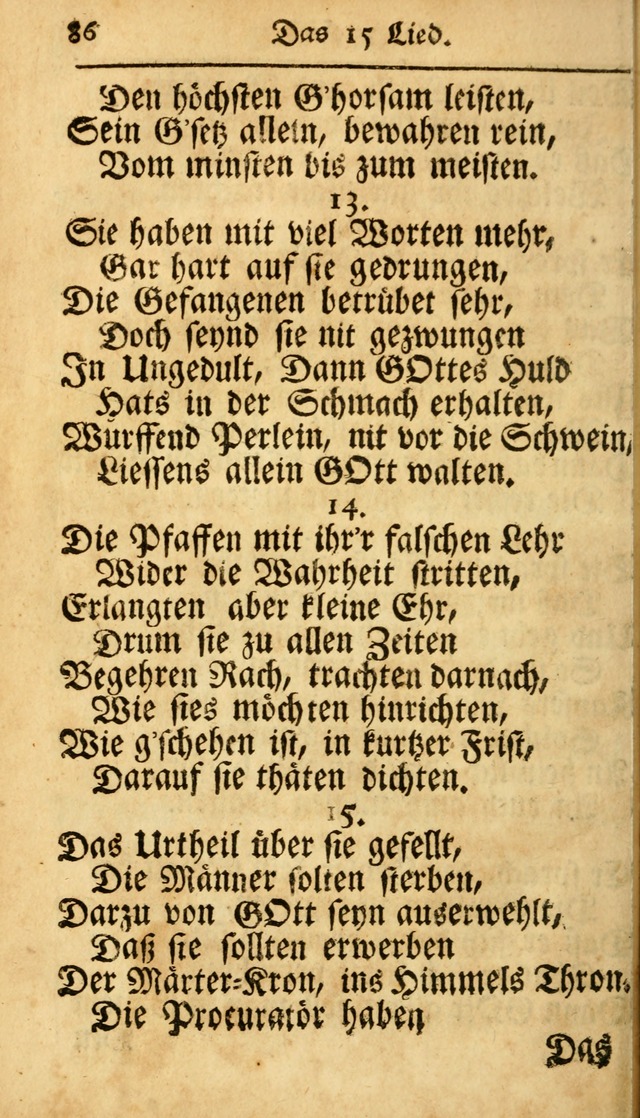 86 Das 15 Lied.
Den höchsten G'horsam leisten,
Sein G'setz allein, bewahren rein,
Vom minsten bis zum meisten.
13.
Sie haben mit viel Worten mehr,
Gar hart auf sie gedrungen,
Die Gefangenen betrübet sehr,
Doch seynd sie nit gezwungen
In Ungedult, Dann GOttes Huld
Hats in der Schmach erhalten,
Wurffend Perlein, nit vor die Schwein,
Liessens allein GOtt walten.
14.
Die Pfaffen mit ihr'r falschen Lehr
Wider die Wahrheit stritten,
Erlangten aber kleine Ehr,
Drum sie zu allen Zeiten
Begehren Rach, trachten darnach,
Wie sies möchten hinrichten,
Wie g'schehen ist, in kurtzer Frist,
Darauf sie thäten dichten.
15.
Das Urtheil über sie gefellt,
Die Männer solten sterben,
Darzu von GOtt seyn auserwehlt,
Daß sie sollten erwerben
Der Märter-Kron, ins Himmels Thron.
Die Procuratör haben
Das